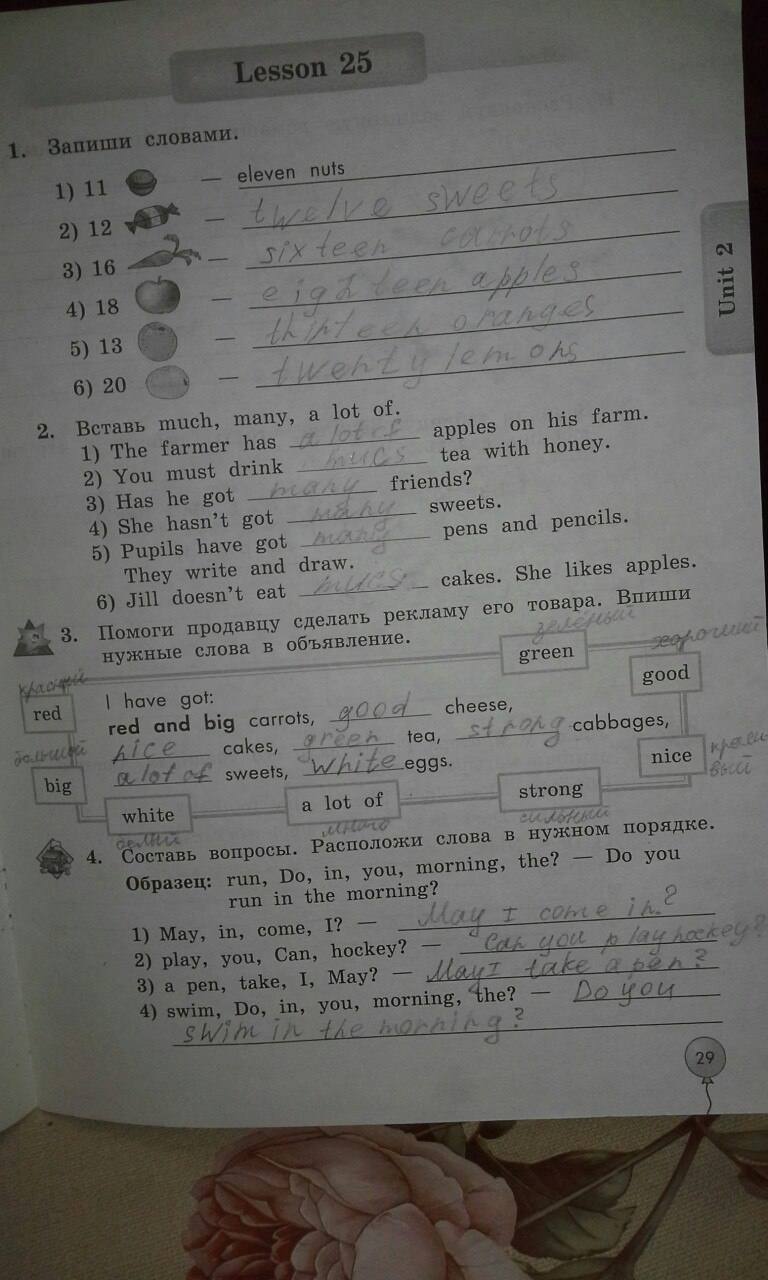 Lesson 25
1. Запиши словами.
1) 11 — eleven nuts
2) 12 — twelve sweets
3) 16 — sixteen carrots
4) 18 — eighteen apples
5) 13 — thirteen oranges
6) 20 — twenty lemons
Unit 2
2. Вставь much, many, a lot of.
1) The farmer has a lot of apples on his farm.
2) You must drink mucs tea with honey.
3) Has he got many friends?
4) She hasn't got many sweets.
5) Pupils have got many pens and pencils.
They write and draw.
6) Jill doesn't eat mucs cakes. She likes apples.
3. Помоги продавцу сделать рекламу его товара. Впиши
нужные слова в объявление.
зелёный
хороший
green
good
красный
red
I have got:
red and big carrots, good cheese,
nice cakes, green tea, strong cabbages,
a lot of sweets, white eggs.
большой
big
nice
краси
вый
white
a lot of
strong
белый
много
сильный
4. Составь вопросы. Расположи слова в нужном порядке.
Образец: run, Do, in, you, morning, the? — Do you
run in the morning?
1) May, in, come, I? — May I come in?
2) play, you, Can, hockey? — Can you play hockey?
3) a pen, take, I, May? — May I take a pen?
4) swim, Do, in, you, morning, the? — Do you
swim in the morning?
29